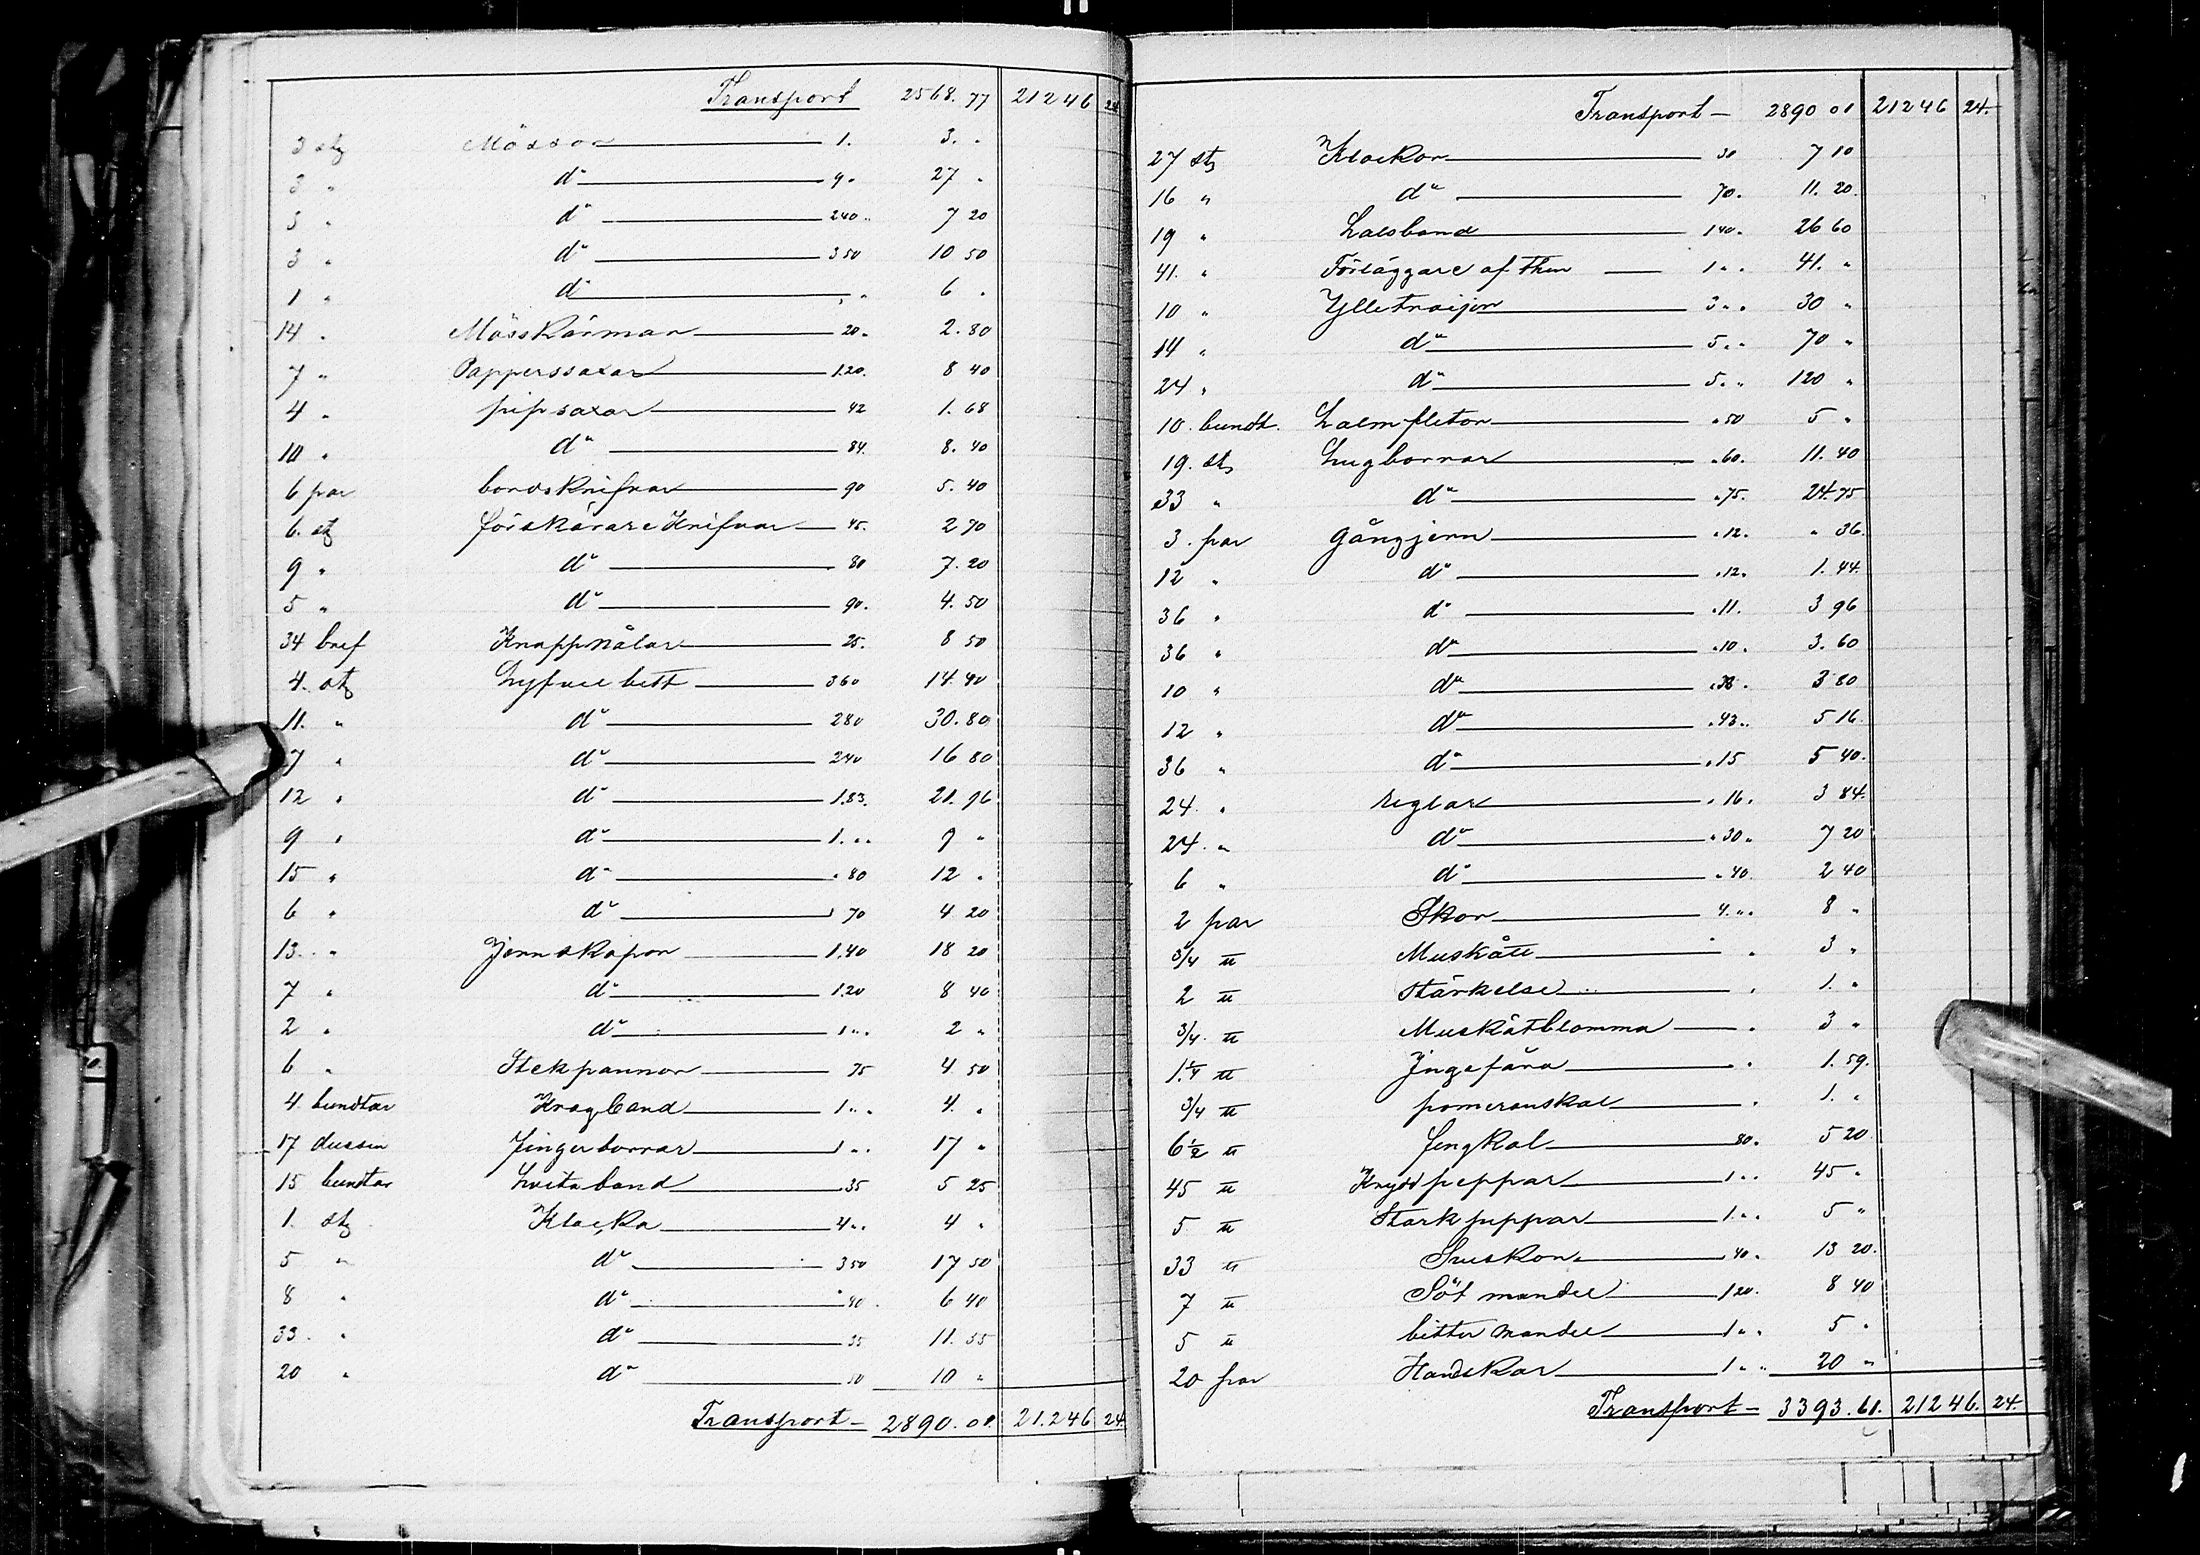 Transport 2568.77 21246 24
3 stg Mössor 1. 3. "
3 " d:o 9 " 27 "
3 " d:o 240 " 7 20
3 " d:o 350 10 50
1 " d:o " " 6 "
14 " Mösskärmar 20 " 2.80
7 " Papperssaxar 120. 8 40
4 " pipsaxar 42 1.68
10 " d:o 84. 8.40
6 par bordsknifvar 90 5.40
6. stg förskärareknifvar 45. 2 70
9 " d:o 80 7.20
5 " d:o 90. 4.50
34 bref Knappnålar 25. 8 50
4. stg Hyfvelbett 360 14.40
11. " d:o 280 30.80
7 " d:o 240 16 80
12 " d:o 1.83. 21.96
9 " d:o 1. " " 9 "
15 " d:o " 80 12 "
6 " d:o " 70 4 20
13. " Jernskapor 1.40 18 20
7 " d:o 120 8 40
2 " d:o 1 " " 2 "
6 " Stekpannor 75 4 50
4 bundtar Kragband 1 " " 4. "
17 dussin fingerborrar 1 " " 17 "
15 bundtar Hvita band 35 5 25
1. stg Klocka 4 " " 4 "
5 " d:o 350 17 50
8 " d:o 80. 6 40
33 " d:o 35 11.55
20 " d:o 50 10 "
Transport – 2890.01. 21.246 24.
Transport – 2890 01 21246 24.
27 stg Klockor 30 7 10
16 " d:o 70. 11.20.
19 " Halsband 140. 26 60
41. " Förläggare af Then 1 " " 41. "
10 " Ylletröijor 3 " " 30 "
14 " d:o 5 " " 70 "
24 " d:o 5 " " 120 "
10. bundt. Halmfletor " 50 5 "
19. stg Hugborrar " 60. 11.40
33 " d:o " 75. 24.75
3. par gångjern " 12. " 36.
12 " d:o " 12. 1.44.
36 " d:o " 11. 3 96
36 " d:o " 10. 3.60
10 " d:o " 38. 3 80
12 " d:o " 43. " 5 16.
36 " d:o " 15 5 40.
24. " reglar " 16. 3 84.
24. " d:o " 30. 7 20
6 " d:o " 40. 2 40
2 par Skor 4. " " 8 "
3/4 ℔ Muskått " 3 "
2 ℔ Stärkelse " 1. "
3/4. ℔ Muskåtblomma " 3 "
1.1/4 ℔ Jngefära " 1.59.
3/4 ℔ pomeranskal " 1. "
6 1/2 ℔ fengkål 80. 5 20
45 ℔ Kryddpeppar 1 " " 45 "
5 ℔ Starkpeppar 1 " " 5 "
33 ℔ Sviskon 40. 13 20.
7 ℔ Söt mandel 120. 8 40
5 ℔ bitter mandel 1 " " 5 "
20 par Handskar 1 " " 20 "
Transport – 3393.61. 21246. 24.